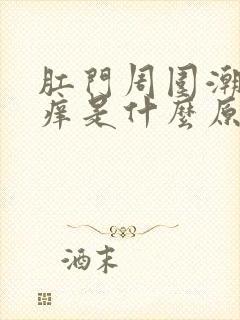 肛門周围潮
痒是什麼原
酒末